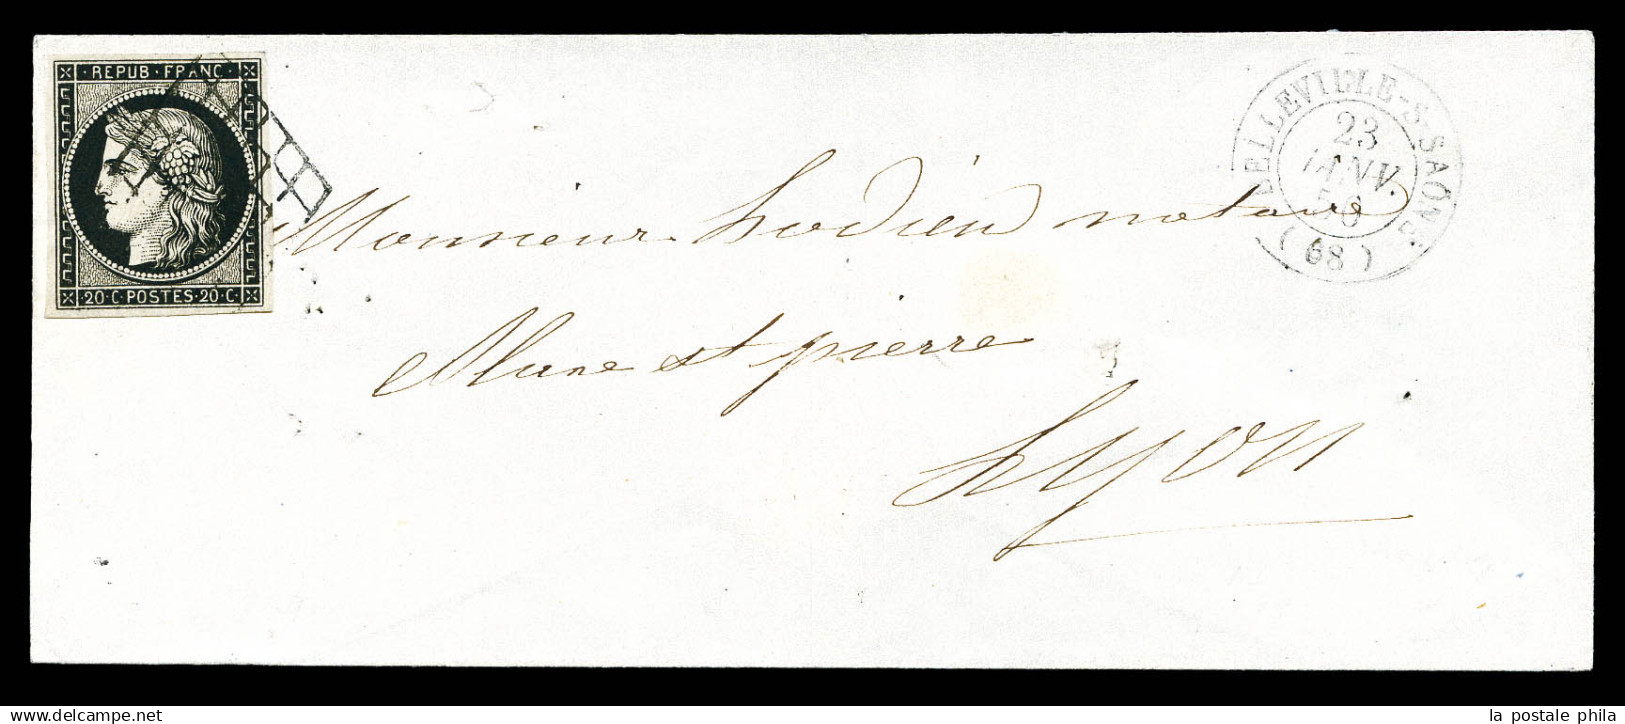 REPUB · FRANC ·
· 20 · C · POSTES · 20 · C ·
BELLEVILLE-S-SAÔNE
23
JANV.
50
(68)
Monsieur hodieu notaire
st pierre
Lyon
la postale phila